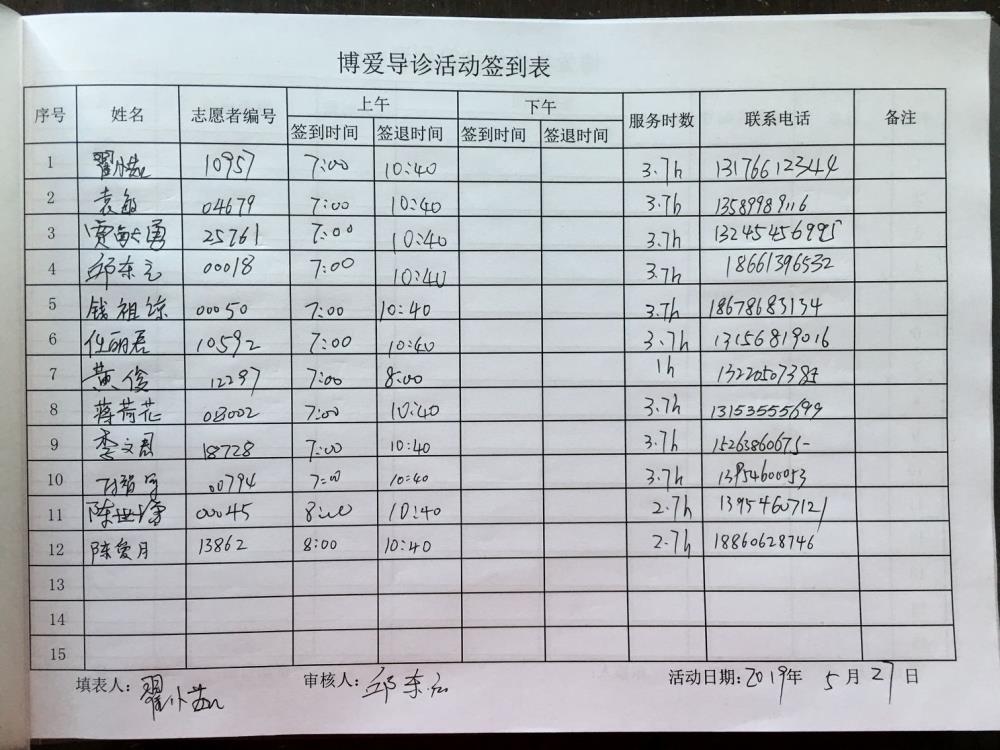 博爱导诊活动签到表
序号 姓名 志愿者编号 上午 下午 服务时数 联系电话 备注
签到时间 签退时间 签到时间 签退时间
1 翟小 10957 7:00 10:40 3.7h 13176612344
2 袁敏 04679 7:00 10:40 3.7h 13589989116
3 贾 勇 25761 7:00 10:40 3.7h 13245456995
4 邱东 00018 7:00 10:40 3.7h 18661396532
5 钱祖琼 00050 7:00 10:40 3.7h 18678683134
6 任丽君 10592 7:00 10:40 3.7h 13156819016
7 黄俊 12297 7:00 8:00 1h
8 蒋荷花 7:00 10:40 3.7h 13153555699
9 李文 18728 7:00 10:40 3.7h 15263860675
10 00794 7:00 10:40 3.7h 13954600053
11 陈世 00045 8:00 10:40 2.7h 13954607121
12 陈爱月 13862 8:00 10:40 2.7h 18860628746
13
14
15
填表人: 翟小 审核人: 邱东 活动日期: 2019年 5月 27日